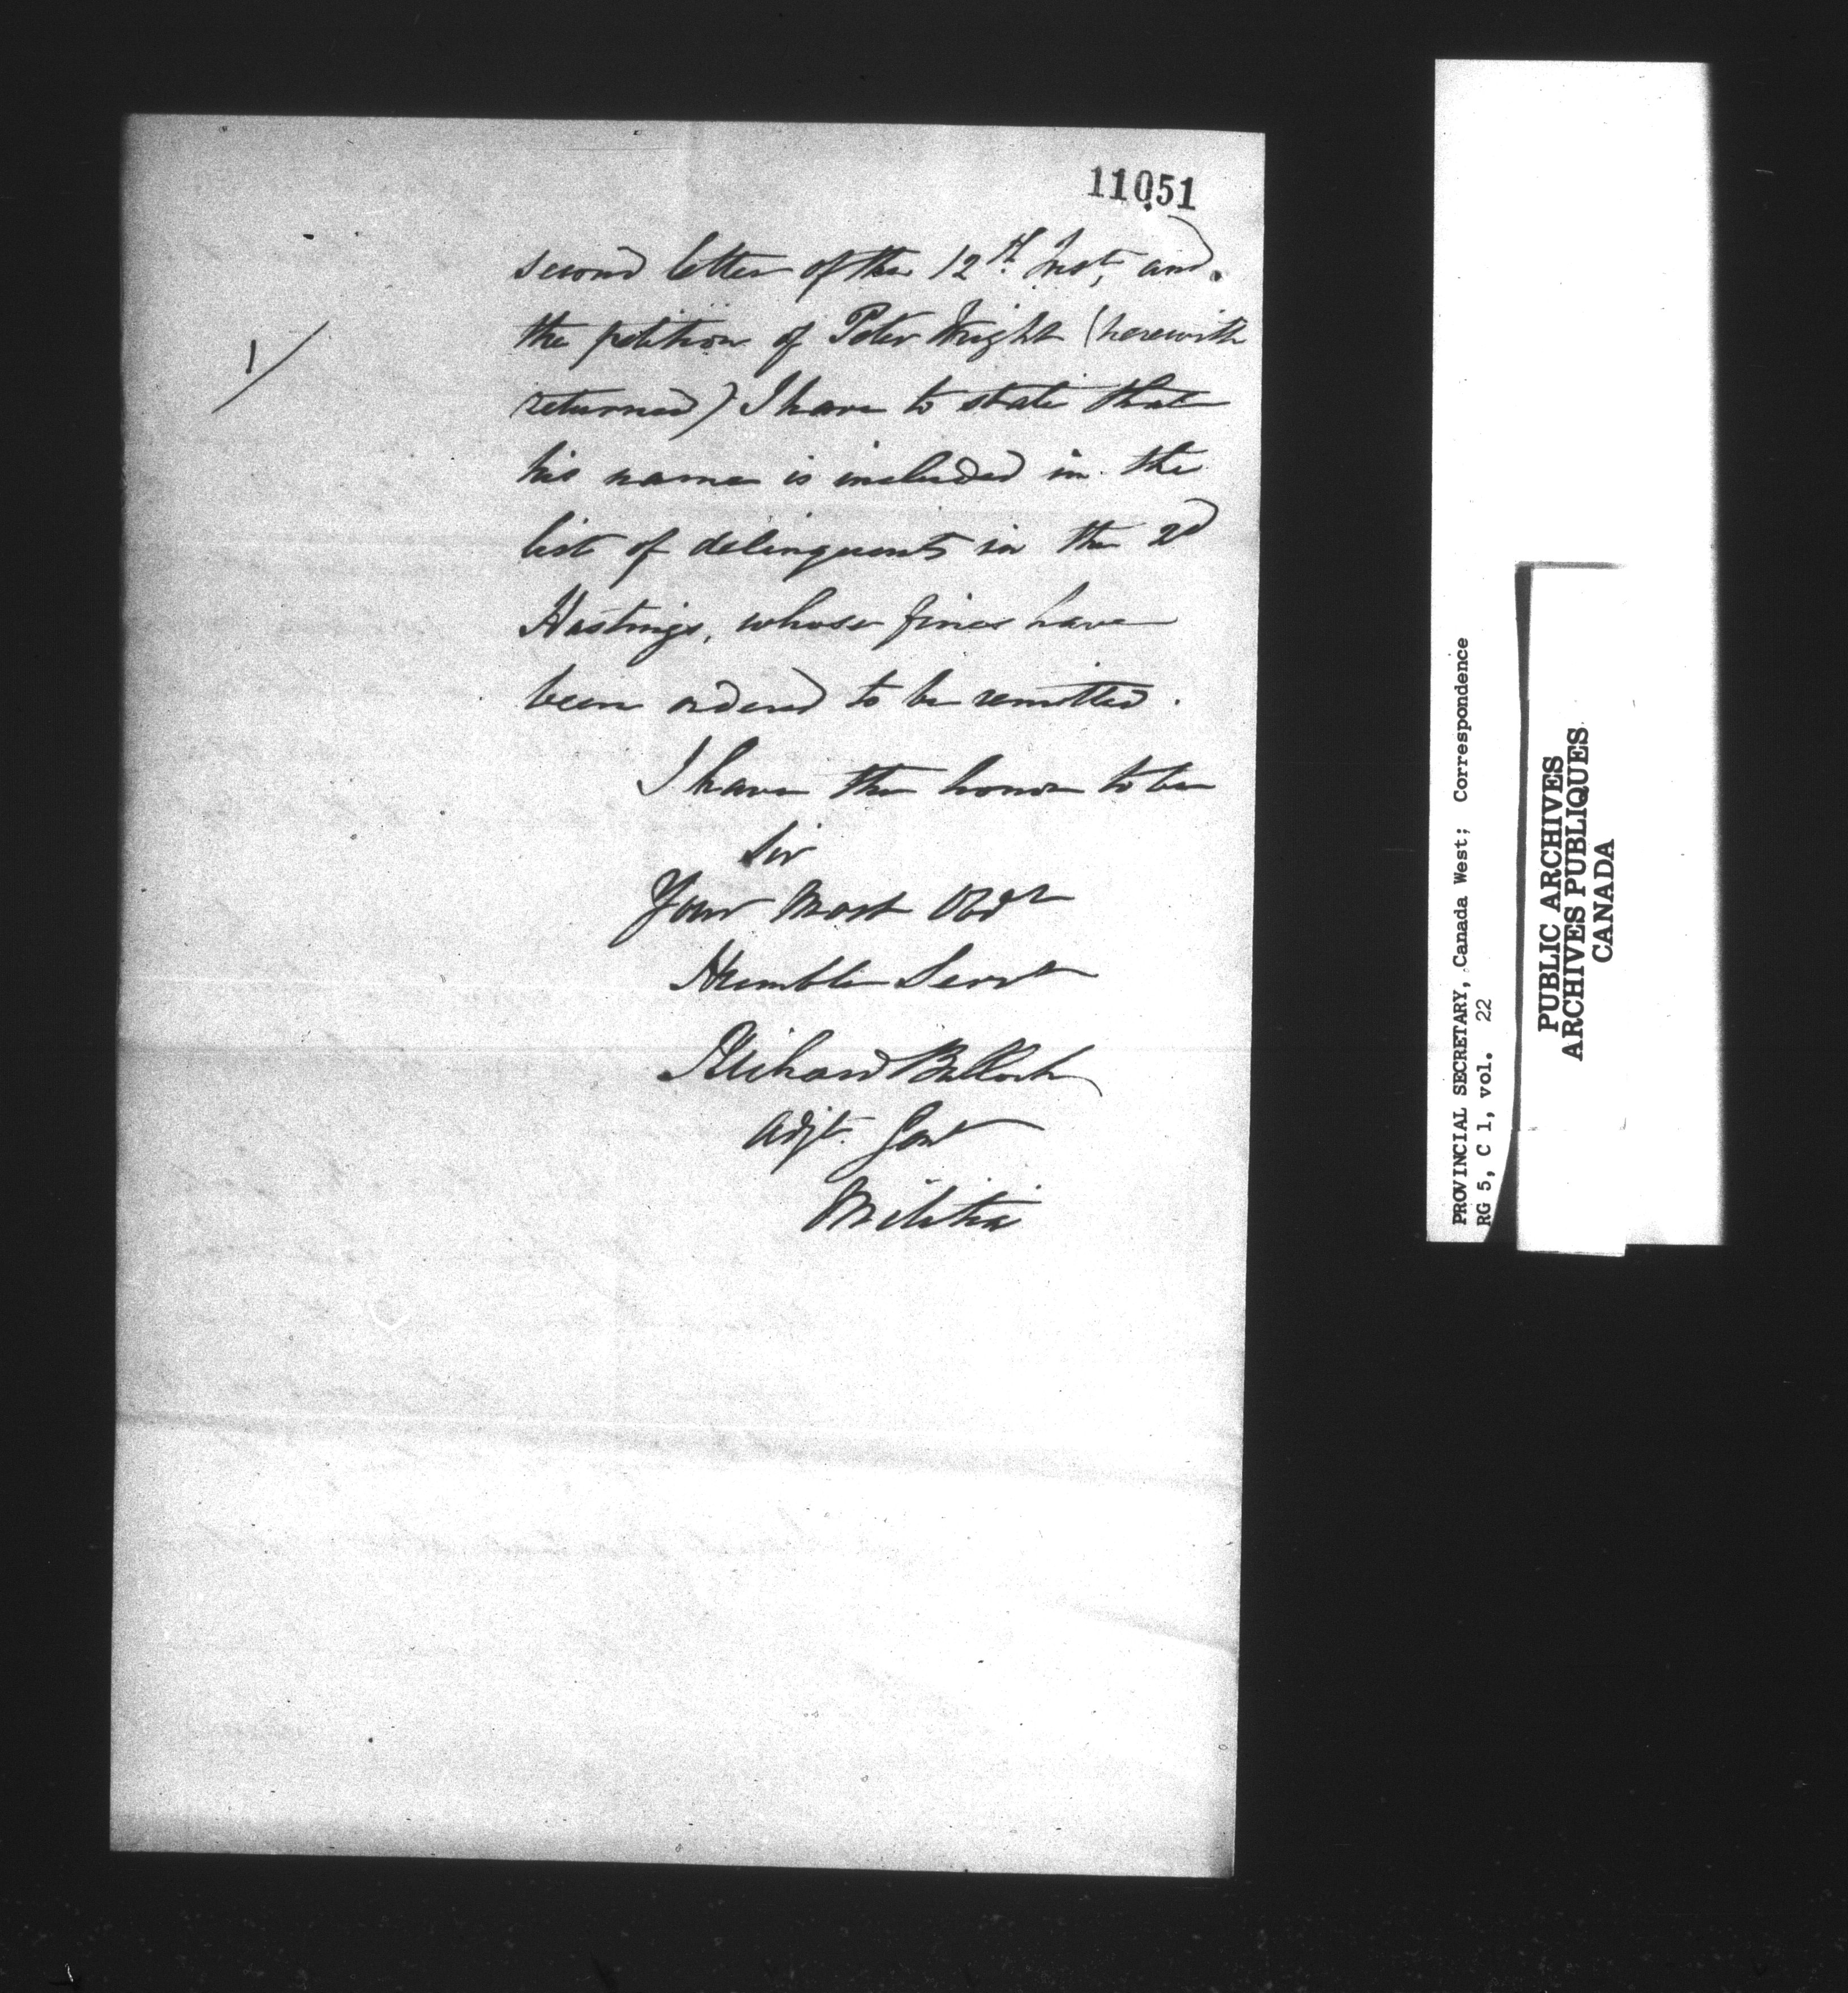 11051
second letter of the 12th Inst, and
the petition of Peter Wright (herewith
returned) I have to state that
his name is included in the
list of delinquents in the 2d
Hastings, whose fines have
been ordered to be remitted.
I have the honor to be
Sir
Your Most Obdt
Humble Servt
Richard Bullock
Adjt. Genl
Militia
PROVINCIAL SECRETARY, Canada West; Correspondence
RG 5, C 1, vol. 22
PUBLIC ARCHIVES
ARCHIVES PUBLIQUES
CANADA